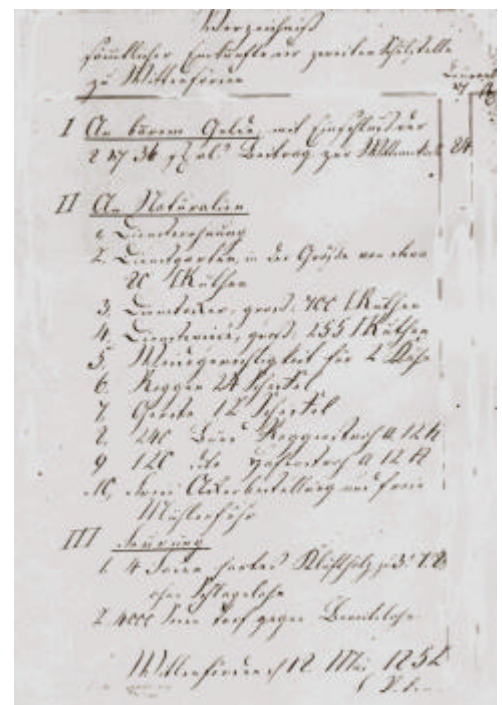 Verzeichniß
sämtlicher Einkünfte der zweiten Schulstelle
zu Wittenförden
I An barem Gelde, mit Einschluß der
2 36 Beitrag zur 84
II An Naturalien
1. Dienstwohnung
2. Dienstgarten, in der Größe von etwa
20 □Ruthen
3. Dienstacker, groß, 700 □Ruthen
4. Dienstwiese, groß, 255 □Ruthen
5. Weidegerechtigkeit für 2 Kühe
6. Roggen 24 Scheffel
7. Gerste 12 Scheffel
8. 240 Bund Roggenstroh a 12 ℔
9 120 dito Haferstroh a 12 ℔
10, freie Ackerbestellung und freie
Mühlenfuhr
III Feurung
1. 4 Faden hartes Kluftholz
ohne Schlagelohn
2. 4000 Soden Torf gegen Bereitelohn
Wittenförden d 12 Mai 1852